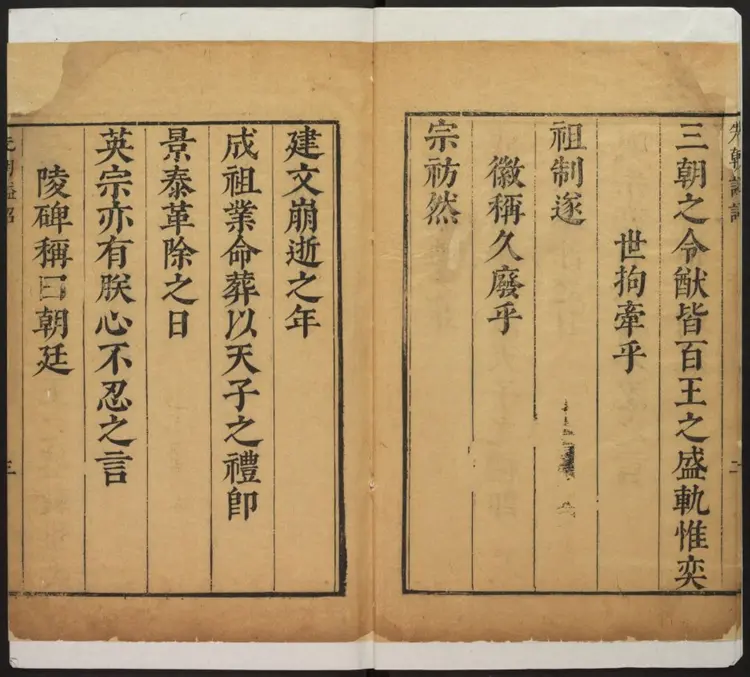 三朝之令猷皆百王之盛軌惟奕
世拘牽乎
祖制遂
徽稱久廢乎
宗祊然
二
建文崩逝之年
成祖業命葬以天子之禮卽
景泰革除之日
英宗亦有朕心不忍之言
陵碑稱曰朝廷
三